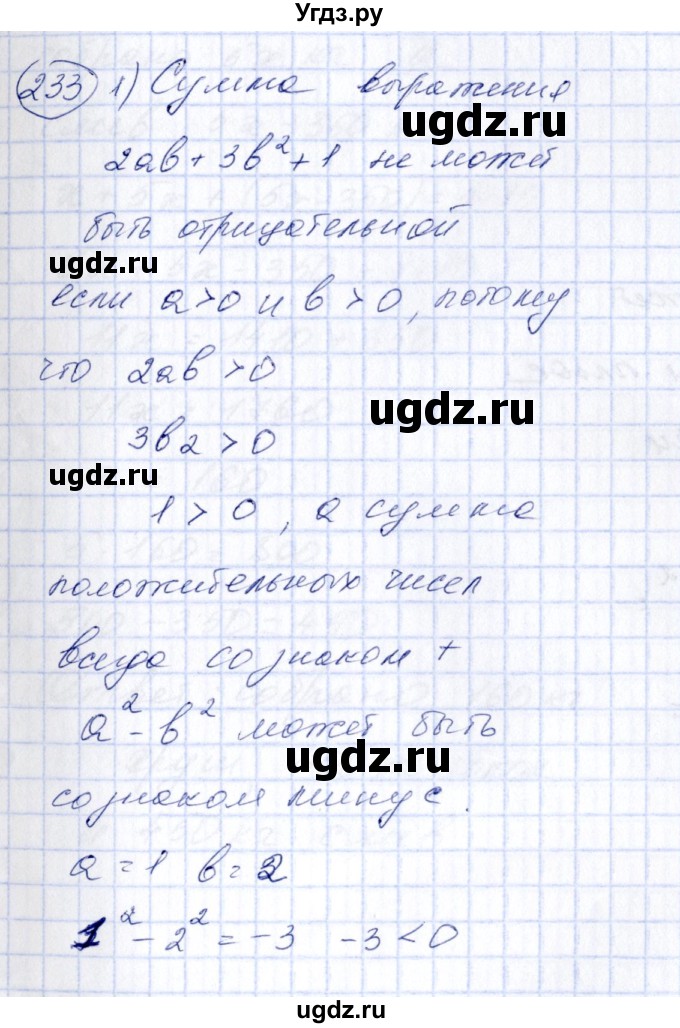 Угдз.ру
233 1) Сумма выражения
ugdz.ru
2ab + 3b² + 1 не может
быть отрицательной
ugdz.ru
если a > 0 и b > 0, потому
что 2ab > 0
ugdz.ru
3b2 > 0
ugdz.ru
1 > 0, а сумма
положительных чисел
всегда со знаком +
a² - b² может быть
ugdz.ru
со знаком минус.
a = 1 b = 2
1² - 2² = -3 -3 < 0
ugdz.ru